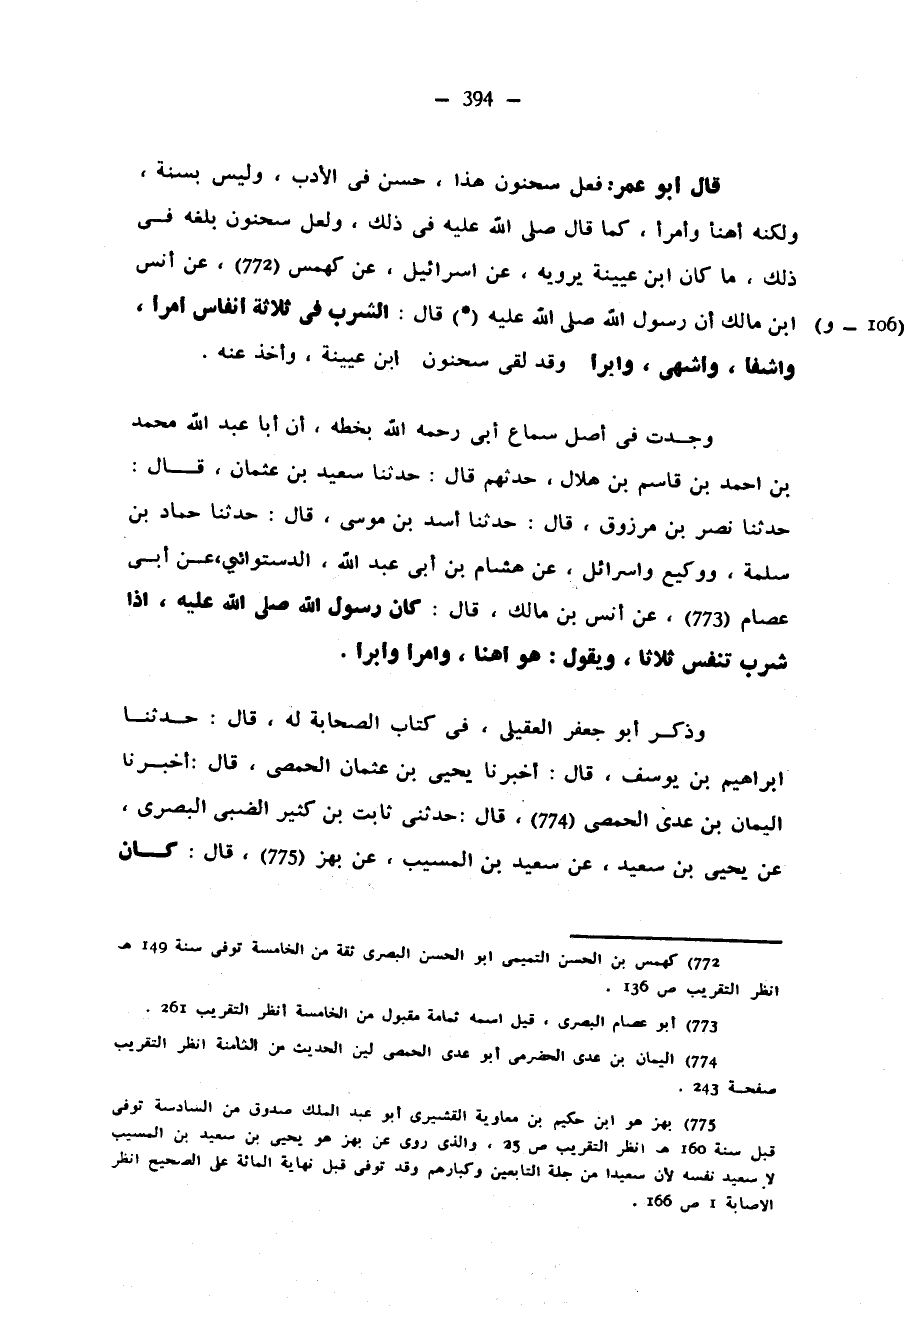 — 394 —
قال أبو عمر: فعل سحنون هذا ، حسن فى الأدب ، وليس بسنة ،
ولكنه أهنأ وأمرأ ، كما قال صلى الله عليه فى ذلك ، ولعل سحنون بلغه فــى
ذلك ، ما كان ابن عيينة يرويه ، عن اسرائيل ، عن كهمس (772) ، عن أنس
(106 — و) ابن مالك أن رسول الله صلى الله عليه (*) قال : الشرب فى ثلاثة أنفاس امرا ،
واشفا ، وأشهى ، وابرا وقد لقى سحنون ابن عيينة ، وأخذ عنه .
وجــدت فى أصل سماع أبى رحمه الله بخطه ، أن أبا عبد الله محمد
بن احمد بن قاسم بن هلال ، حدثهم قال : حدثنا سعيد بن عثمان ، قــــال :
حدثنا نصر بن مرزوق ، قال : حدثنا أسد بن موسى ، قال : حدثنا حماد بن
سلمة ، ووكيع واسرائل ، عن هشام بن أبى عبد الله ، الدستوائي،عــن أبــى
عصام (773) ، عن أنس بن مالك ، قال : كان رسول الله صلى الله عليه ، اذا
شرب تنفس ثلاثا ، ويقول : هو أهنا ، وامرا وابرا .
وذكــر أبو جعفر العقيلى ، فى كتاب الصحابة له ، قال : حــدثنــا
ابراهيم بن يوسف ، قال : أخبرنا يحيى بن عثمان الحمصى ، قال :أخبــرنا
اليمان بن عدى الحمصى (774) ، قال :حدثنى ثابت بن كثير الضبى البصرى ،
عن يحيى بن سعيد ، عن سعيد بن المسيب ، عن بهز (775) ، قال : كــــان
772) كهمس بن الحسن التميمى ابو الحسن البصرى ثقة من الخامسة توفى سنة 149 هـ
انظر التقريب ص 136 .
773) أبو عصام البصرى ، قيل اسمه ثمامة مقبول من الخامسة أنظر التقريب 261 .
774) اليمان بن عدى الحضرمى أبو عدى الحمصى لين الحديث من الثامنة انظر التقريب
صفحـة 243 .
775) بهز هو ابن حكيم بن معاوية القشيرى أبو عبد الملك صدوق من السادسة توفى
قبل سنة 160 هـ انظر التقريب ص 25 ، والذى روى عن بهز هو يحيى بن سعيد بن المسيب
لا سعيد نفسه لأن سعيدا من جلة التابعين وكبارهم وقد توفى قبل نهاية المائة على الصحيح انظر
الاصابة 1 ص 166 .